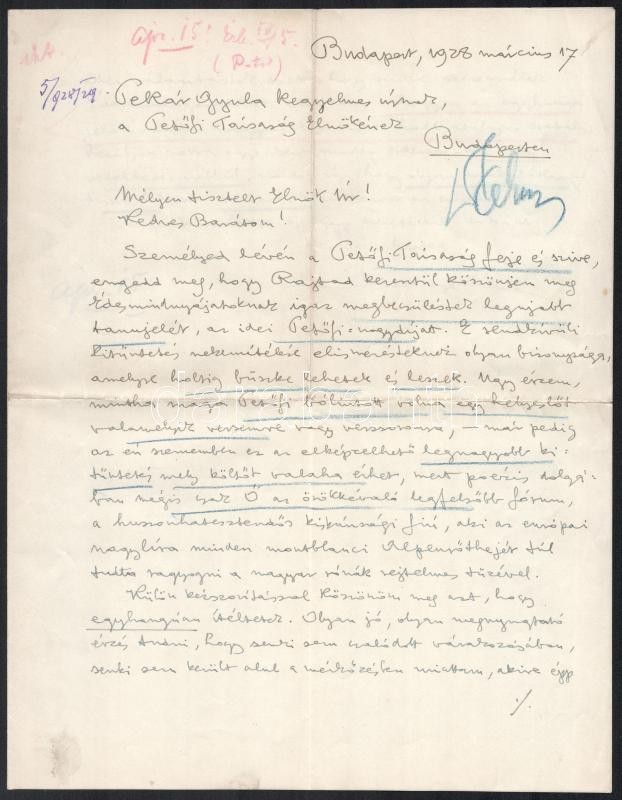 ápr. 15! Érk. IV/5.
Budapest, 1928 március 17
5/928/29.
Pekár Gyula kegyelmes úrnak,
a Petőfi Társaság Elnökének
Budapesten
Mélyen tisztelt Elnök Úr!
Kedves Barátom!
Személyed lévén a Petőfi Társaság feje és szíve,
engedd meg, hogy Rajtad keresztül köszönjem meg
Édesmindnyájatoknak igaz megbecsülésteket legujabb
tanujelét, az idei Petőfi-nagydíjat. E rendkívüli
kitüntetés nekemítélése elismerésteknek olyan bizonysága,
amelyre holtig büszke lehetek és leszek. Ugy érzem,
mintha maga Petőfi bólintott volna egy helyeslőt
valamelyik versemre vagy verssoromra, — már pedig
az én szememben ez az elképzelhető legnagyobb ki-
tüntetés mely költőt valaha érhet, mert poézis dolgá-
ban mégis csak Ő az örökkévaló legfelsőbb fórum,
a huszonhatesztendős kiskúnsági fiú, aki az európai
nagylíra minden montblanci Alpenrőthején túl
tudta ragyogni a magyar rónák rejtelmes tüzével.
Külön kézszorítással köszönöm meg azt, hogy
egyhangúan ítéltetek. Olyan jó, olyan megnyugtató
érzés tudni, hogy senki sem csalódott várakozásában,
senki sem került alul a mérkőzésben miattam, akire épp
./.
darabanth